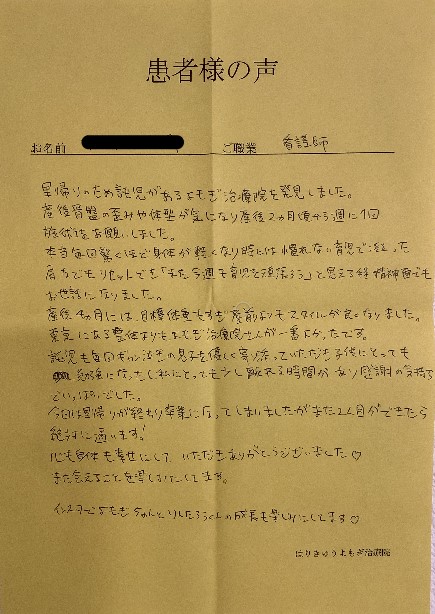 患者様の声
お名前 ご職業 看護師
里帰りのため託児があるよもぎ治療院を発見しました。
産後骨盤の歪みや体型が気になり産後2ヵ月頃から週に1回
施術をお願いしました。
本当毎回驚くほど身体が軽くなり時には慣れない育児で凝った
肩などもリセットでき「また今週も育児を頑張ろう」と思える様 精神面でも
お世話になりました。
産後4ヵ月には、目標体重もすぎ産前よりもスタイルが良くなりました。
東京にある整体よりもよもぎ治療院さんが一番よかったです。
託児も毎回ギャン泣きの息子を優しく寄り添っていただき子供にとっても
勉強になったし私にとっても少し離れる時間があり感謝の気持ち
でいっぱいでした。
今回は里帰りが終わり卒業になってしまいましたがまた2人目ができたら
絶対に通います!
心も身体も幸せにして いただきありがとうございました♡
また会えることを楽しみにしてます。
インスタでよもぎちゃんとりんたろうくんの成長も楽しみにしてます♡
はりきゅうよもぎ治療院